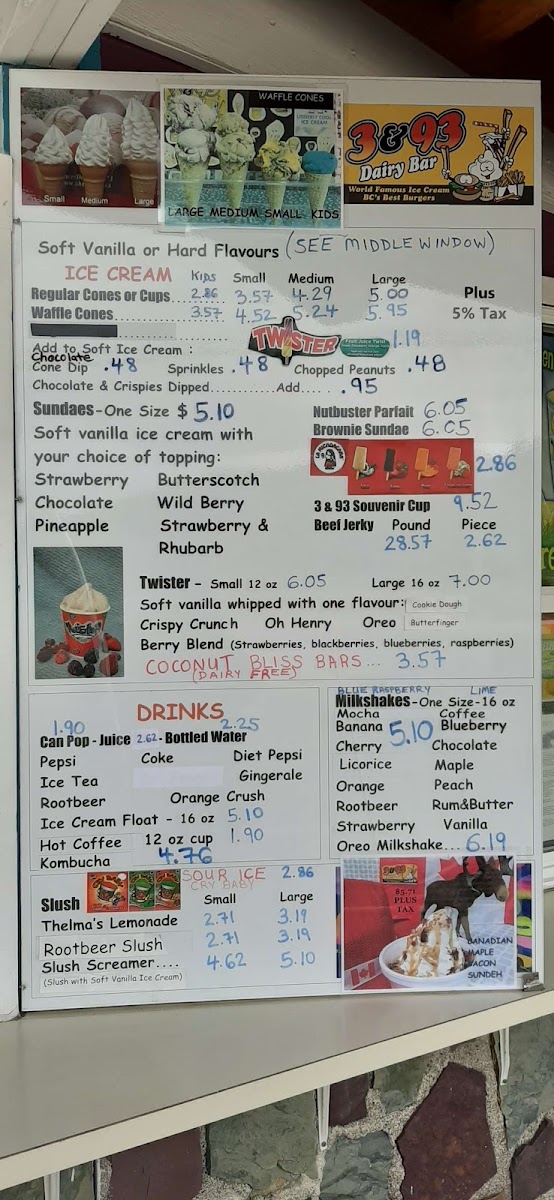 Small Medium Large
WAFFLE CONES
LARGE MEDIUM SMALL KIDS
3 & 93
Dairy Bar
World Famous Ice Cream
BC's Best Burgers
Soft Vanilla or Hard Flavours (SEE MIDDLE WINDOW)
ICE CREAM KIDS Small Medium Large
Regular Cones or Cups.... 2.86 3.57 4.29 5.00 Plus
Waffle Cones................ 3.57 4.52 5.24 5.95 5% Tax
TWISTER Fruit Juice Twist 1.19
Add to Soft Ice Cream :
Chocolate
Cone Dip .48 Sprinkles .48 Chopped Peanuts .48
Chocolate & Crispies Dipped..............Add.... .95
Sundaes-One Size $ 5.10
Soft vanilla ice cream with
your choice of topping:
Strawberry Butterscotch
Chocolate Wild Berry
Pineapple Strawberry &
Rhubarb
Nutbuster Parfait 6.05
Brownie Sundae 6.05
2.86
3 & 93 Souvenir Cup 9.52
Beef Jerky Pound Piece
28.57 2.62
Twister - Small 12 oz 6.05 Large 16 oz 7.00
Soft vanilla whipped with one flavour: Cookie Dough
Crispy Crunch Oh Henry Oreo Butterfinger
Berry Blend (Strawberries, blackberries, blueberries, raspberries)
COCONUT BLISS BARS... 3.57
(DAIRY FREE)
DRINKS
1.90 2.25
Can Pop - Juice 2.62 - Bottled Water
Pepsi Coke Diet Pepsi
Ice Tea Gingerale
Rootbeer Orange Crush
Ice Cream Float - 16 oz 5.10
Hot Coffee 12 oz cup 1.90
Kombucha 4.76
BLUE RASPBERRY LIME
Milkshakes-One Size-16 oz
Mocha Coffee
Banana 5.10 Blueberry
Cherry Chocolate
Licorice Maple
Orange Peach
Rootbeer Rum&Butter
Strawberry Vanilla
Oreo Milkshake... 6.19
SOUR ICE 2.86
CRY BABY
Slush Small Large
Thelma's Lemonade 2.71 3.19
Rootbeer Slush 2.71 3.19
Slush Screamer.... 4.62 5.10
(Slush with Soft Vanilla Ice Cream)
$5.71
PLUS
TAX
CANADIAN
MAPLE
BACON
SUNDEH